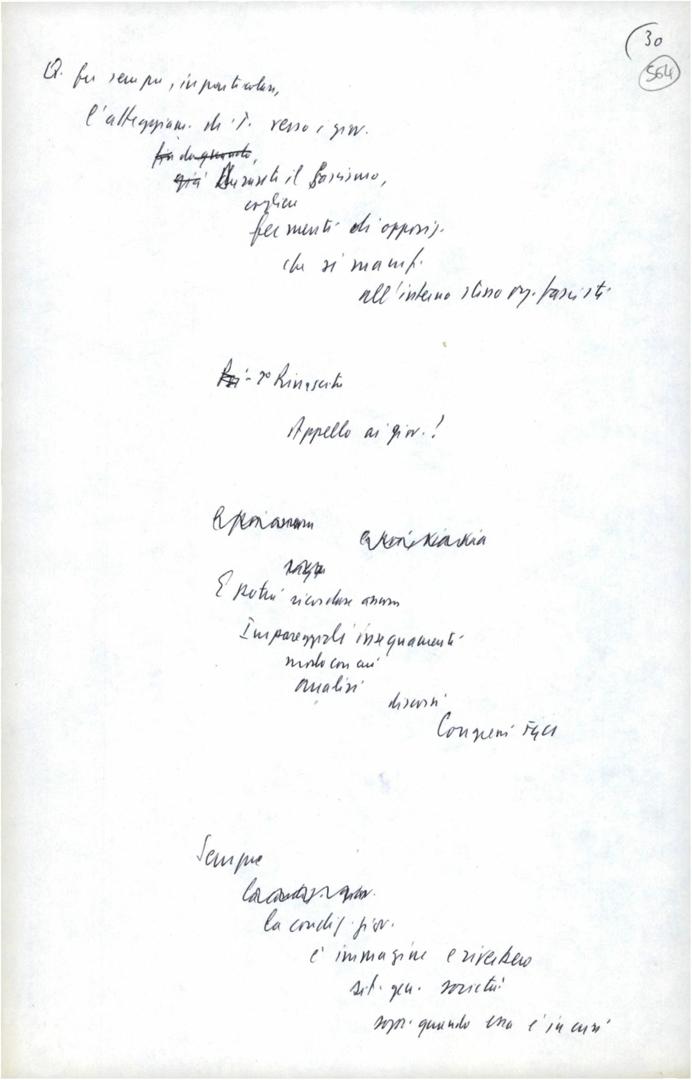 (30
564
Q. fu sempre, in particolare,
l'atteggiam. di T. verso i giov.
fin da quando,
già Durante il fascismo,
cogliere
fermenti di opposiz.
che si manif.
all'interno stesso org. fasciste
Poi - 2° Rinascita
Appello ai giov.!
E potrei ricordare ancora
Impareggiabili insegnamenti
modo con cui
analisi
discorsi
Congressi FGCI
Sempre
la condiz. giov.
la condiz. giov.
è immagine e riverbero
sit. gen. società
sopr. quando essa è in crisi